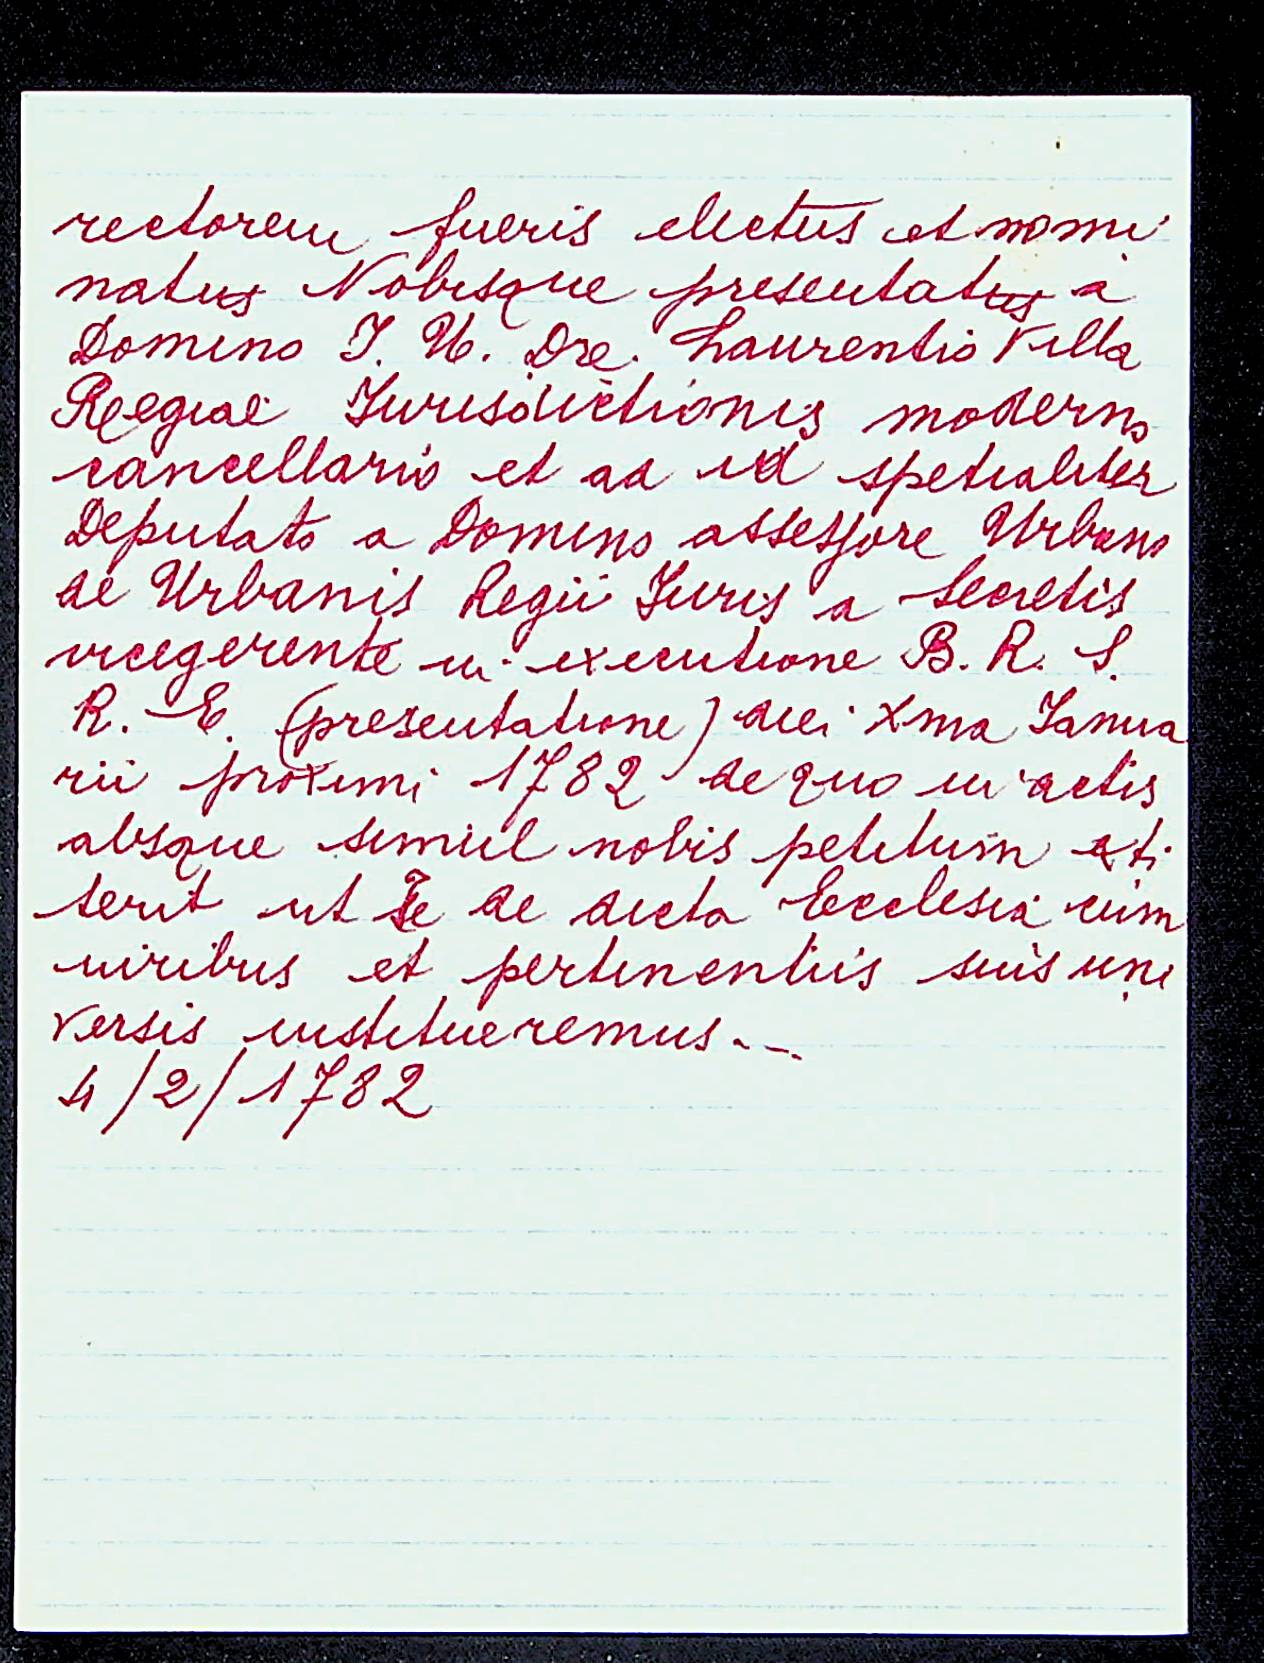 rectorem fueris electus et nomi
natus Nobisque presentatus a
Domino J. U. Dre. Laurentio Villa
Regiae Jurisdictionis moderno
cancellario et ad id spetialiter
Deputato a Domino assessore Urbano
de Urbanis Regii Juris a Secretis
vicegerente in executione B. R. S.
R. E. (presentatione) diei Xma Janua
rii proximi 1782 de quo in actis
absque simul nobis petitum exti
terit ut Te de dicta Ecclesia cum
viribus et pertinentiis suis uni
versis institueremus...
4/2/1782